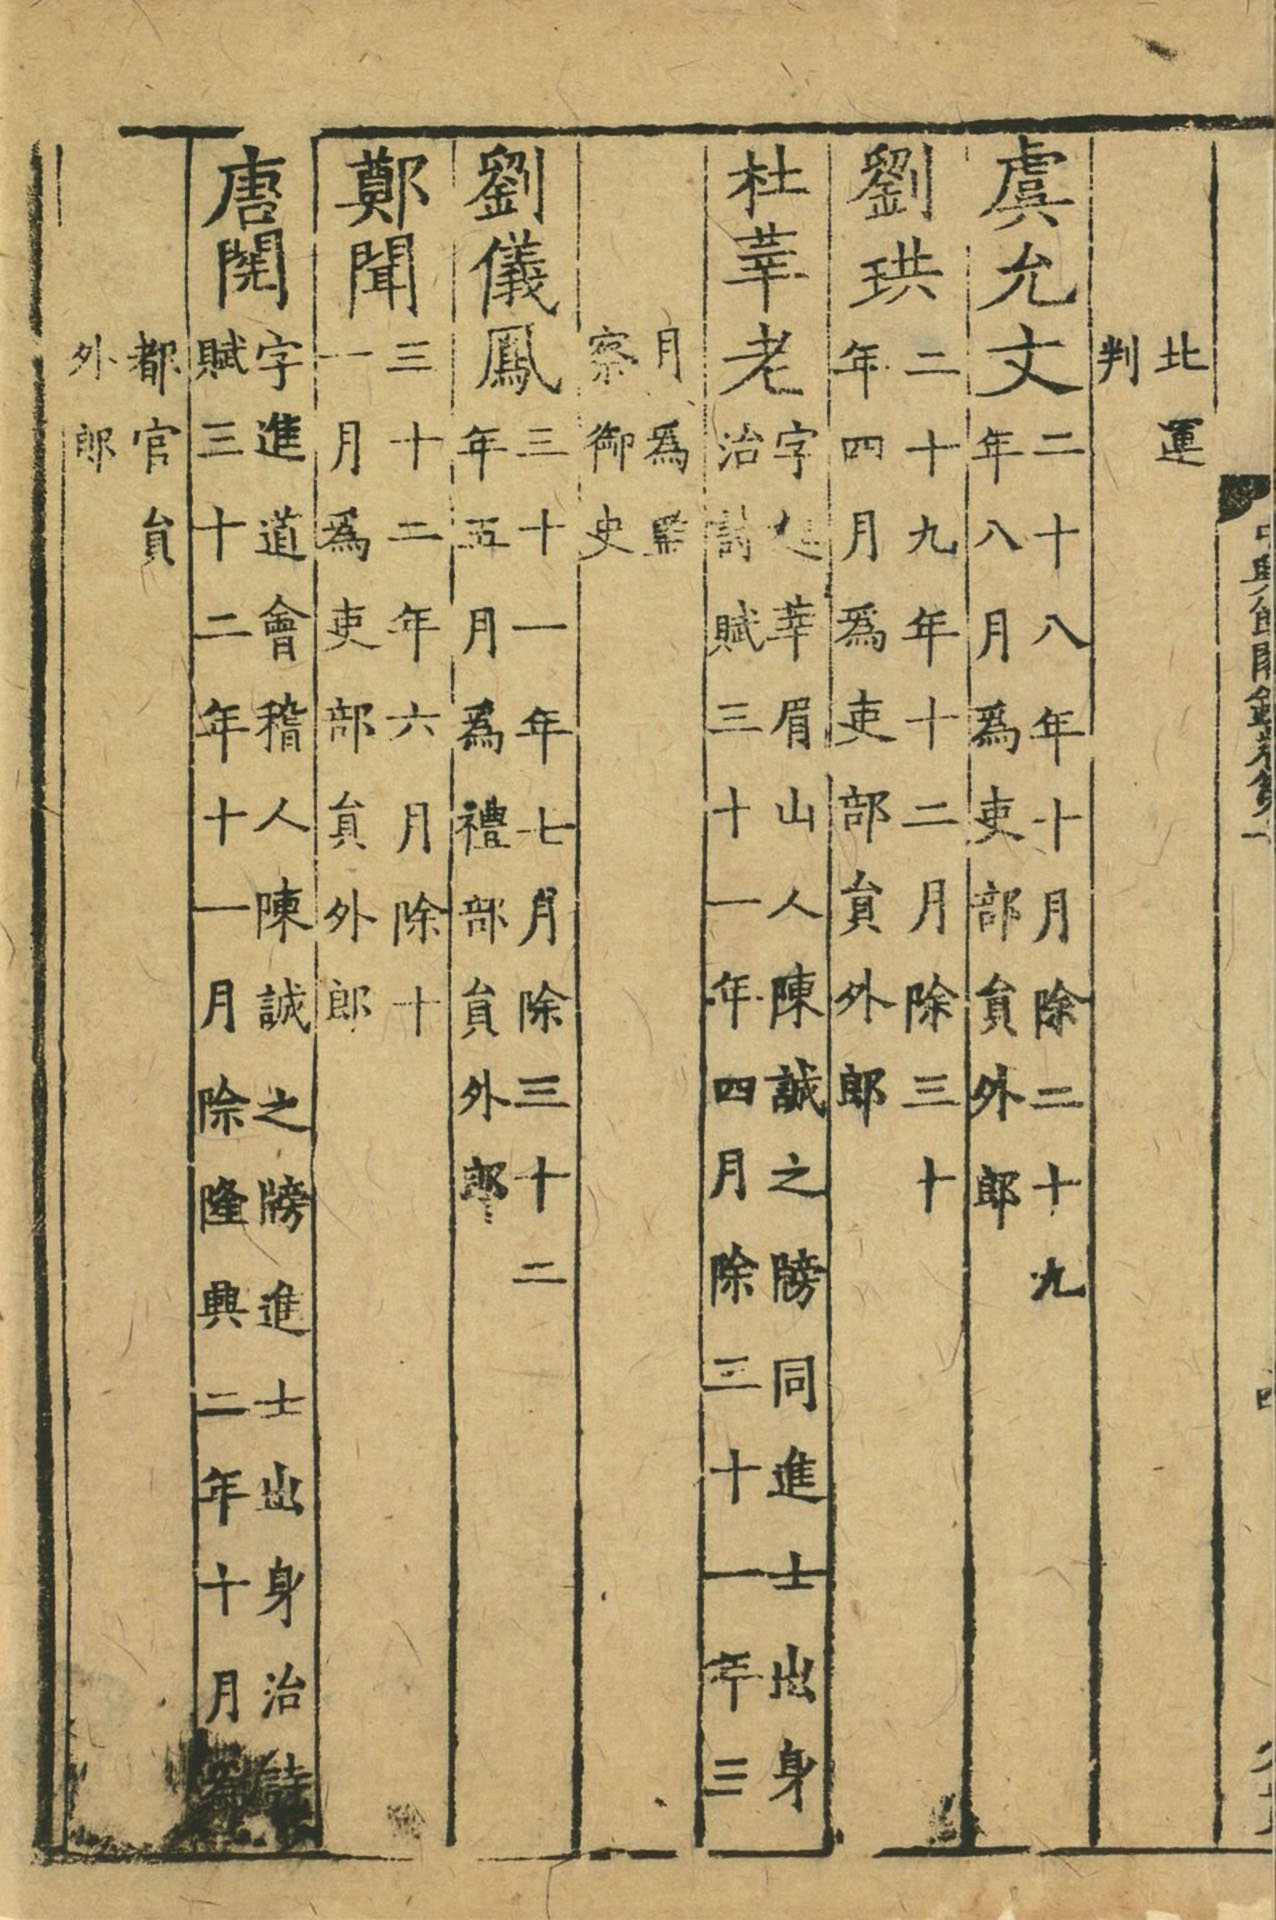 北運
判
虞允文 二十八年十月除二十九
年八月為吏部員外郎
劉珙 二十九年十二月除三十
年四月爲吏部員外郎
杜莘老 字起莘眉山人陳誠之牓同進士出身
治詩賦三十一年四月除三十一年三
月爲監
察御史
劉儀鳳 三十一年七月除三十二
年五月爲禮部員外郎
鄭聞 三十二年六月除十
一月爲吏部員外郎
唐閱 字進道會稽人陳誠之牓進士出身治詩
賦三十二年十一月除隆興二年十月為
都官員
外郎
中興館閣錄卷第